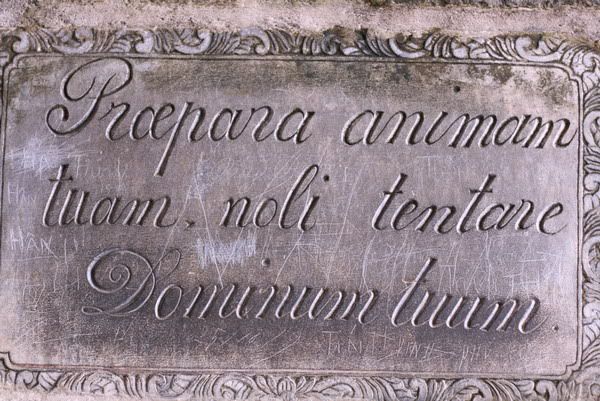 Præpara animam
tuam, noli tentare
Dominum tuum.